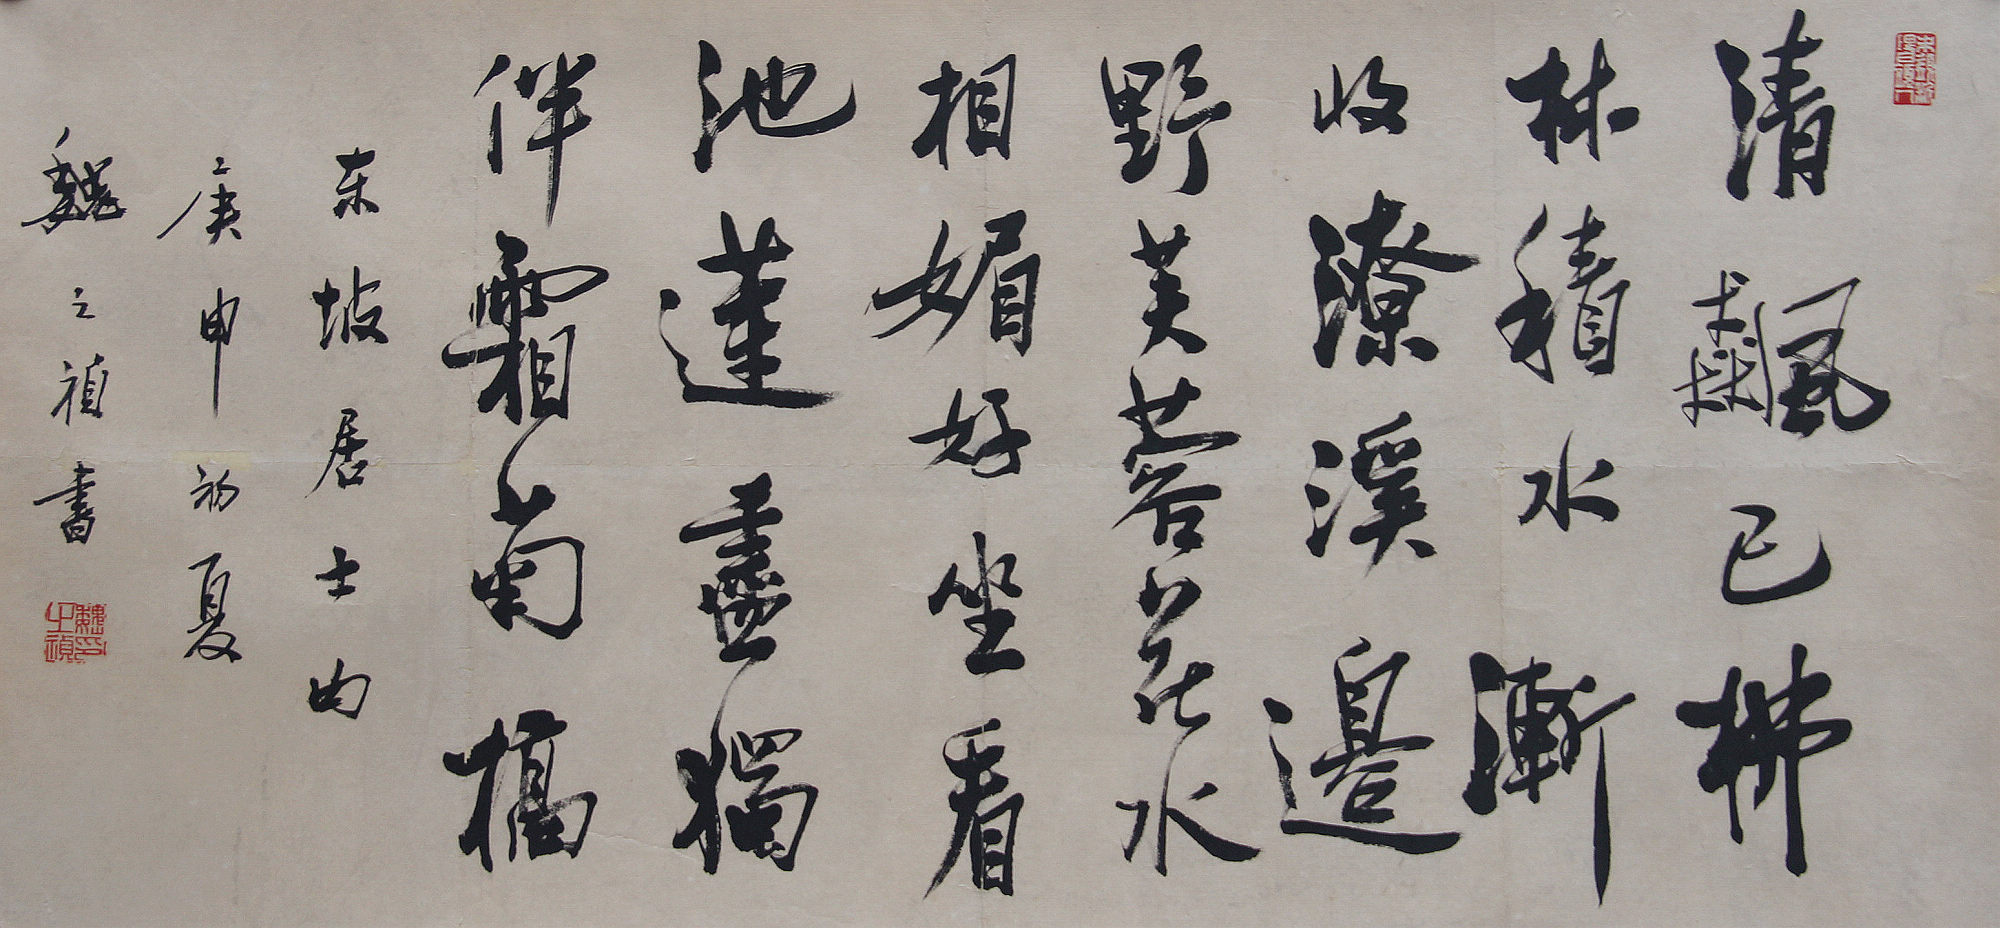 清飆已拂
林積水漸
收潦溪邊
野芙蓉花水
相媚好坐看
池蓮盡獨
伴霜菊槁
东坡居士句
庚申初夏
魏之禎書
魏之禎印